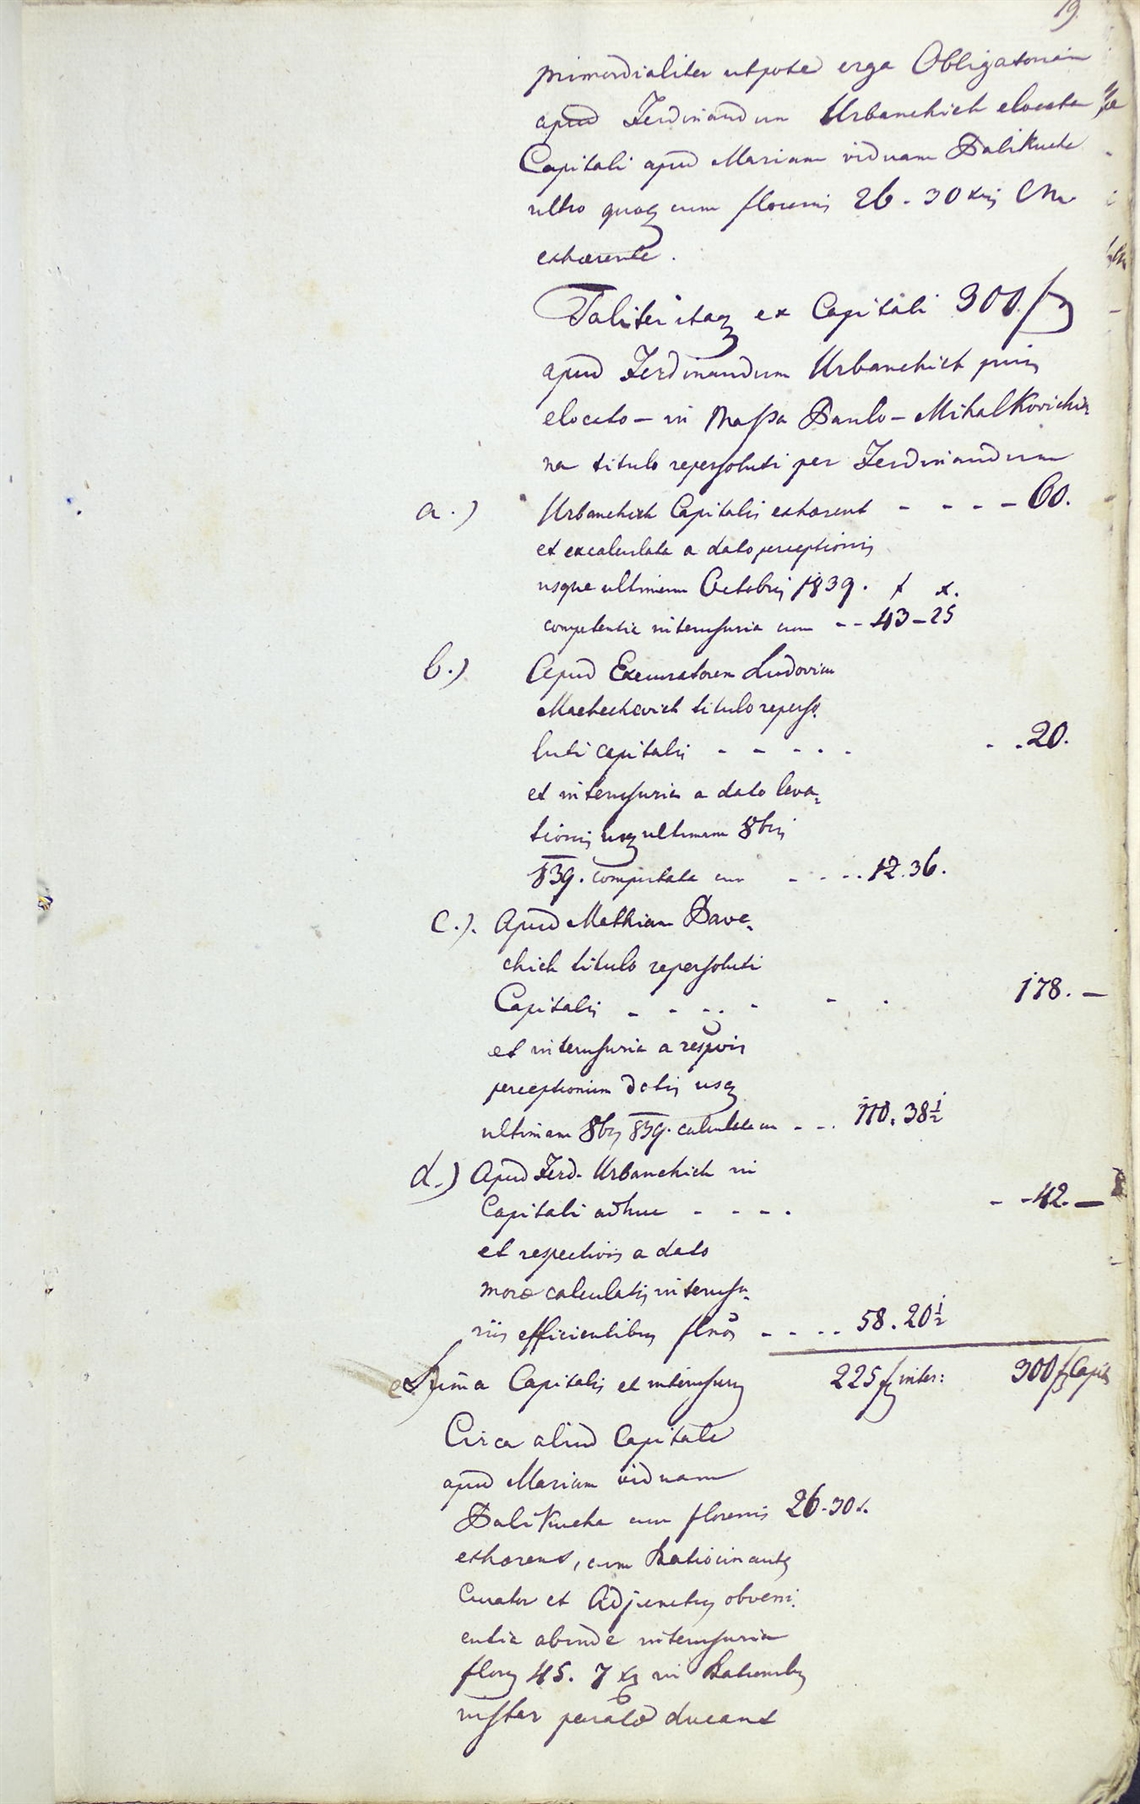 19.
primordialiter utpote erga Obligatoriam
apud Ferdinandum Urbanchich elocato
Capitali apud Mariam viduam Balikucha
ultro quoq cum florenis 26. 30 xris CM.
exhaerente.
Taliter itaq ex Capitali 300 f
apud Ferdinandum Urbanchich prius
elocato – in Massa Paulo – Mihalkovichia
na titulo repersoluti per Ferdinandum
a.) Urbanchich Capitalis exhaerent - - - - 60.
et excalculata a dato perceptionis
usque ultimam Octobris 1839. f x.
competentia interusuria cum - - 43 – 25
b.) Apud Excuratorem Ludovicum
Machechevich titulo reperso
luti capitalis - - - - - - . 20.
et interusuria a dato leva
tionis usq ultimam 8bris
839. computata cum - - - . . 12. 36.
C.). Apud Mathiam Pave
chich titulo repersoluti
Capitalis - - . . - - . 178. –
et interusuria a respvis
perceptionum datis usq
ultimam 8bris 839. calculata cum - - . 110. 38½
d.) Apud Ferd. Urbanchich in
Capitali adhuc - - - . - - 42. –
et respectivis a dato
morae calculatis interusu
riis efficientibus flnos - - . . 58. 20½
Suma Capitalis et interusurii 225 f inter: 300 f Capit
Circa aliud Capitale
apud Mariam viduam
Balikucha cum florenis 26. 30 x.
exhaerens, cum Ratiocinantes
Curator et Adjunctus obveni
entia abinde interusuria
floris 45. 7 x in Rationibus
ducant